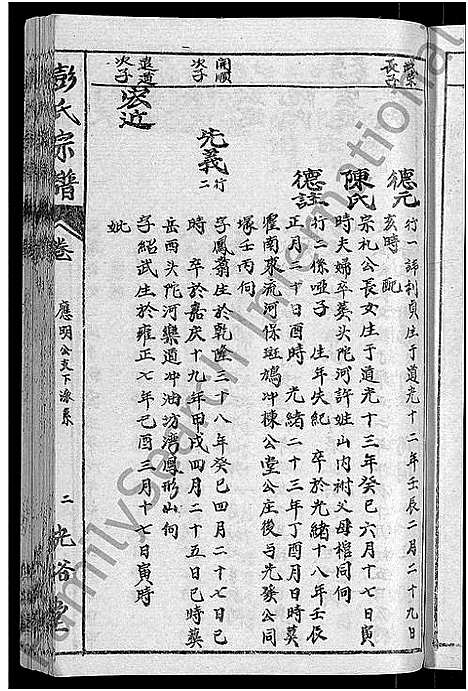 長子
德元
行一諱利貞生于道光十二年壬辰二月二十九日
亥時 配
陳氏
宗礼公長女生于道光十三年癸巳六月十七日寅
時夫婦卒葬头陀河許姓山内树父母棺同向
德註
行二係哑子 生年失紀 卒於光緒十八年壬辰
正月二十日酉時 光緒二十三年丁酉月日時葵
霍南來流河保斑鳩冲棟公堂公庄後与光發公同
塚壬丙向
開順
次子
先義
行二
字鳳蓊生於乾隆三十八年癸巳四月二十七日巳
時 卒於嘉庆十九年甲戌四月二十五日巳時葵
岳西头陀河樂道冲油坊湾鳳形山向
進道
次子
宏近
字紹武生於雍正七年己酉三月十七日寅時
妣
彭氏宗譜
卷
應明公支下派系
二
光裕堂
FamilySearch International